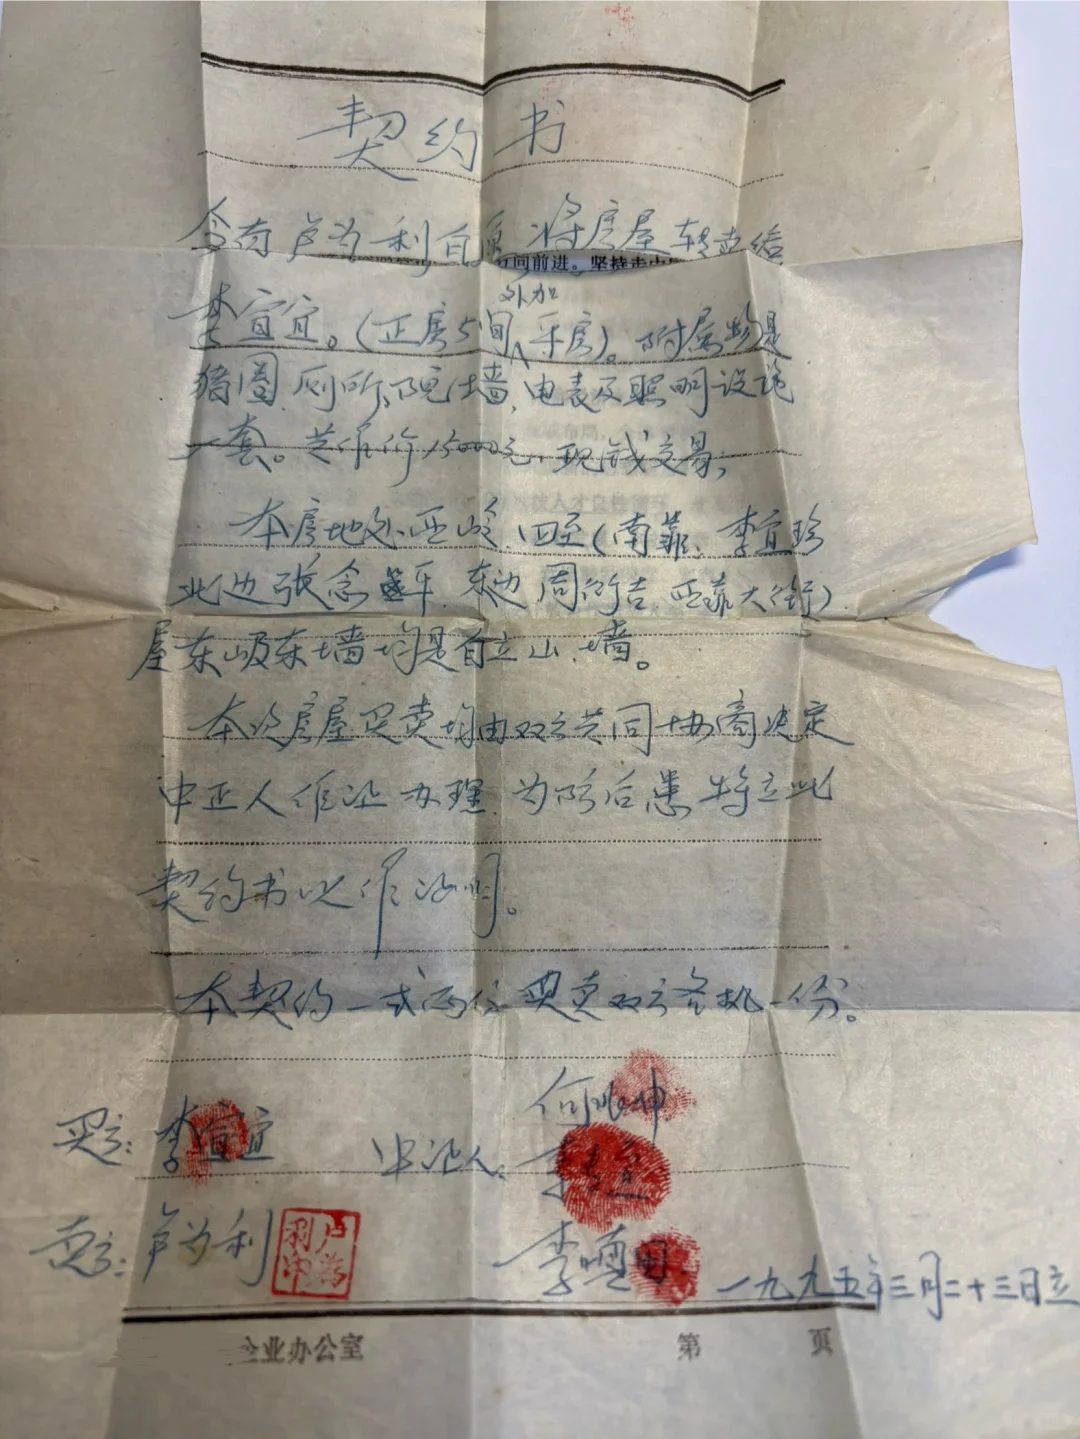 契约书
今有卢为利自愿将房屋转卖给
间前进。坚持走
外加
李宜宜。(正房5间,平房)。附属物是
猪圈、厕所、院墙,电表及照明设施
一套。共作价15000元,现钱交易,
本房地处西岭,四至(南靠、李宜珍
北边张念平、东边周衍吉、西靠大街)
屋东山及东墙均是自立山、墙。
本次房屋买卖均由双方共同协商决定
中正人作证办理,为防后患特立此
契约书以作证明。
本契约一式两份买卖双方各执一份。
何兆坤
买方:李宜宜 中证人:李
卖方:卢为利 李 一九九五年三月二十三日立
企业办公室 第 页